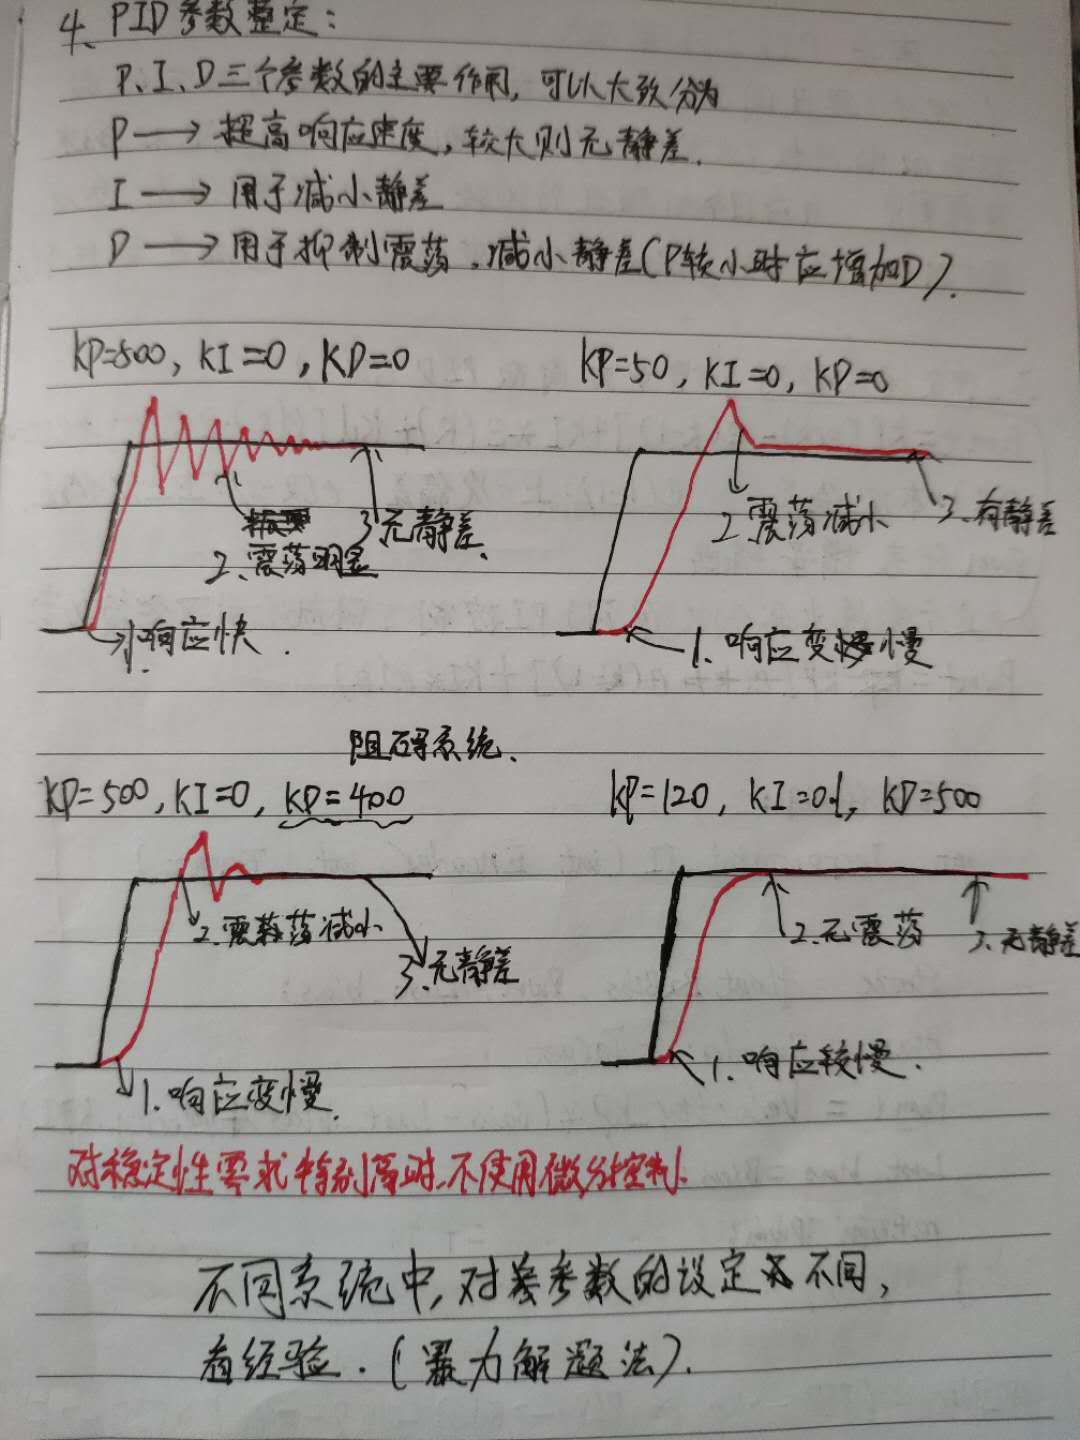 4、PID参数整定：
P、I、D三个参数的主要作用，可以大致分为
P → 提高响应速度，较大则无静差.
I → 用于减小静差
D → 用于抑制震荡，减小静差(P较小时应增加D).
KP=500, KI=0, KD=0
KP=50, KI=0, KD=0
2、震荡明显
3、无静差.
1.响应快.
2、震荡减小
3、有静差
1、响应变慢
阻碍系统.
KP=500, KI=0, KD=400
KP=120, KI=0.1, KD=500
2、震荡减小
3、无静差
1.响应变慢.
2、无震荡
3、无静差
1、响应较慢.
对稳定性要求特别高时，不使用微分控制.
不同系统中，对参数的设定不同，
看经验.(暴力解题法).